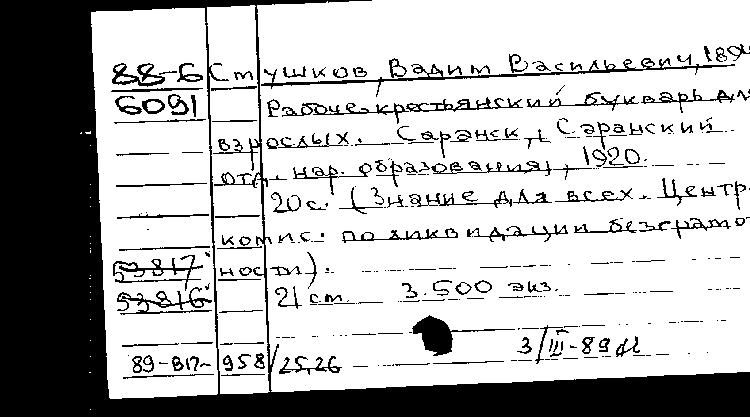 88-6 Стушков, Вадим Васильевич, 189
6091 Рабоче-крестьянский букварь для
взрослых. Саранск, Саранский
отд. нар. образования, 1920.
20 с. (Знание для всех. Центр.
комис. по ликвидации безграмо
53817 ности).
53816 21 см. 3.500 экз.
3/III-89
89-В17- 958/25,26